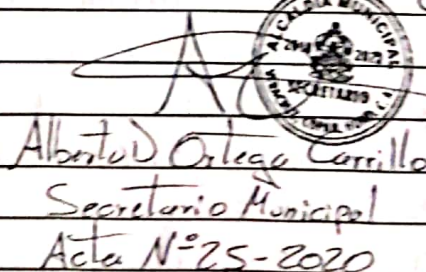 ALCALDIA MUNICIPAL
SECRETARIO
Alberto D Ortega Carrillo
Secretario Municipal
Acta Nº25-2020